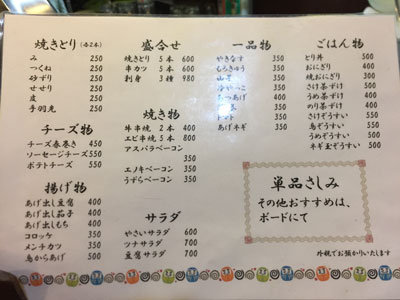 焼きとり（各2本）
み 250
つくね 250
砂ずり 250
せせり 250
皮 250
手羽先 250
チーズ物
チーズ春巻き 450
ソーセージチーズ 550
ポテトチーズ 550
揚げ物
あげ出し豆腐 400
あげ出し茄子 400
あげ出しもち 400
コロッケ 350
メンチカツ 350
鳥からあげ 500
盛合せ
焼きとり 5本 600
串カツ 5本 600
刺身 3種 980
焼き物
牛串焼 2本 400
エビ串焼 5本 800
アスパラベーコン
350
エノキベーコン 350
うずらベーコン 350
サラダ
やさいサラダ 600
ツナサラダ 700
豆腐サラダ 700
一品物
やきなす 350
もろきゅう 350
山芋 350
冷やっこ 350
あつあげ 400
350
トマト 350
あげネギ 350
ごはん物
とり丼 500
おにぎり 300
焼おにぎり 300
さけ茶づけ 400
うめ茶づけ 400
のり茶づけ 400
さけぞうすい 500
鳥ぞうすい 500
うめぞうすい 500
ネギ玉ぞうすい 500
単品さしみ
その他おすすめは、
ボードにて
外税でお預かりいたします